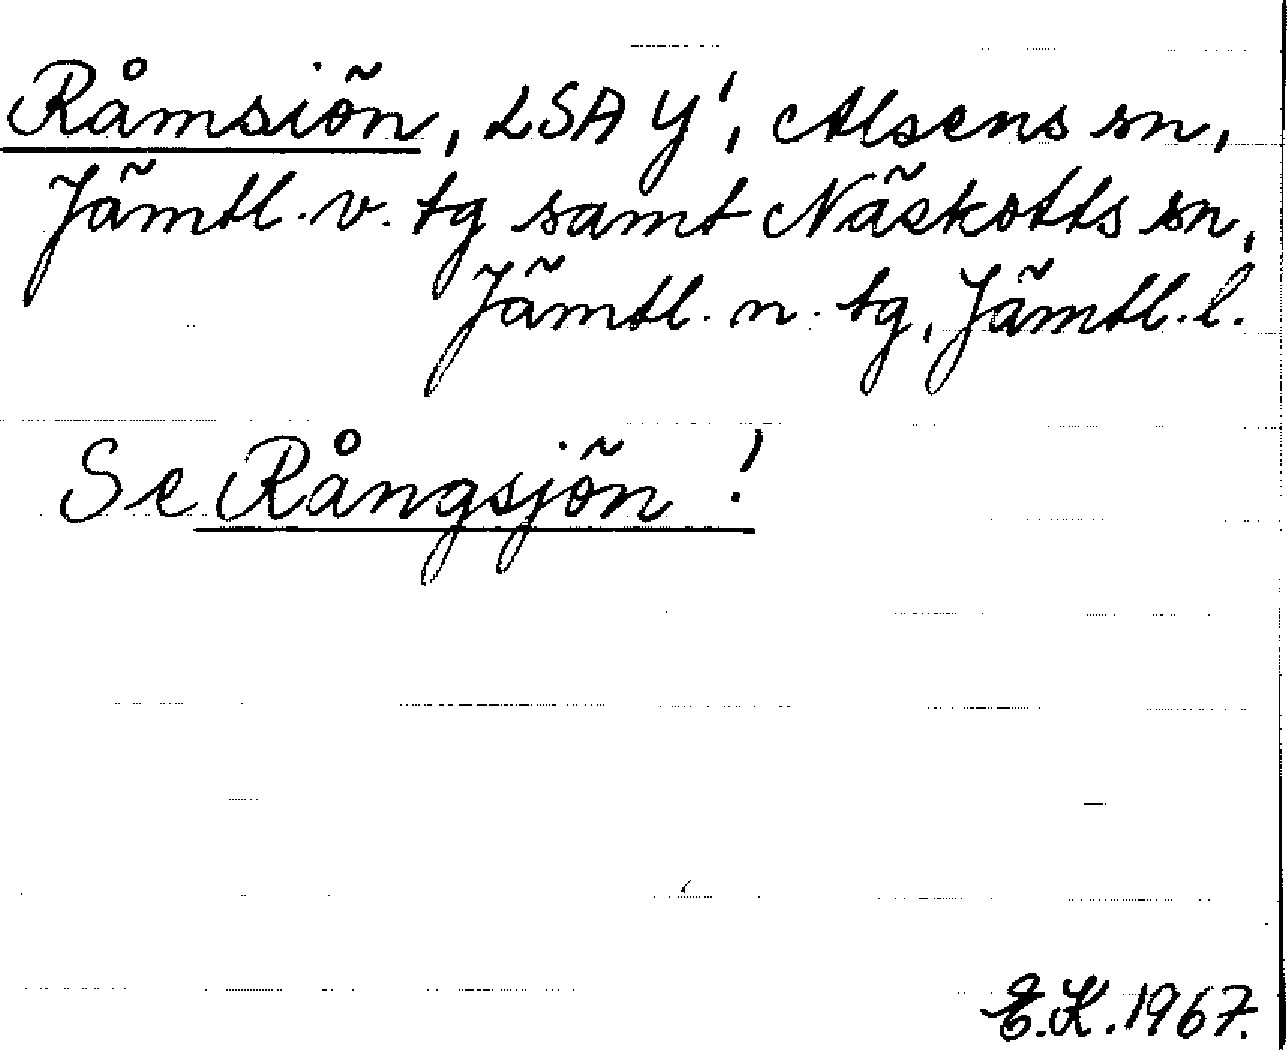 Råmsiön, LSA Y', Alsens sn,
Jämtl. v. tg samt Näskotts sn,
Jämtl. n. tg, Jämtl. l.
Se Rångsjön !
E.K. 1967.